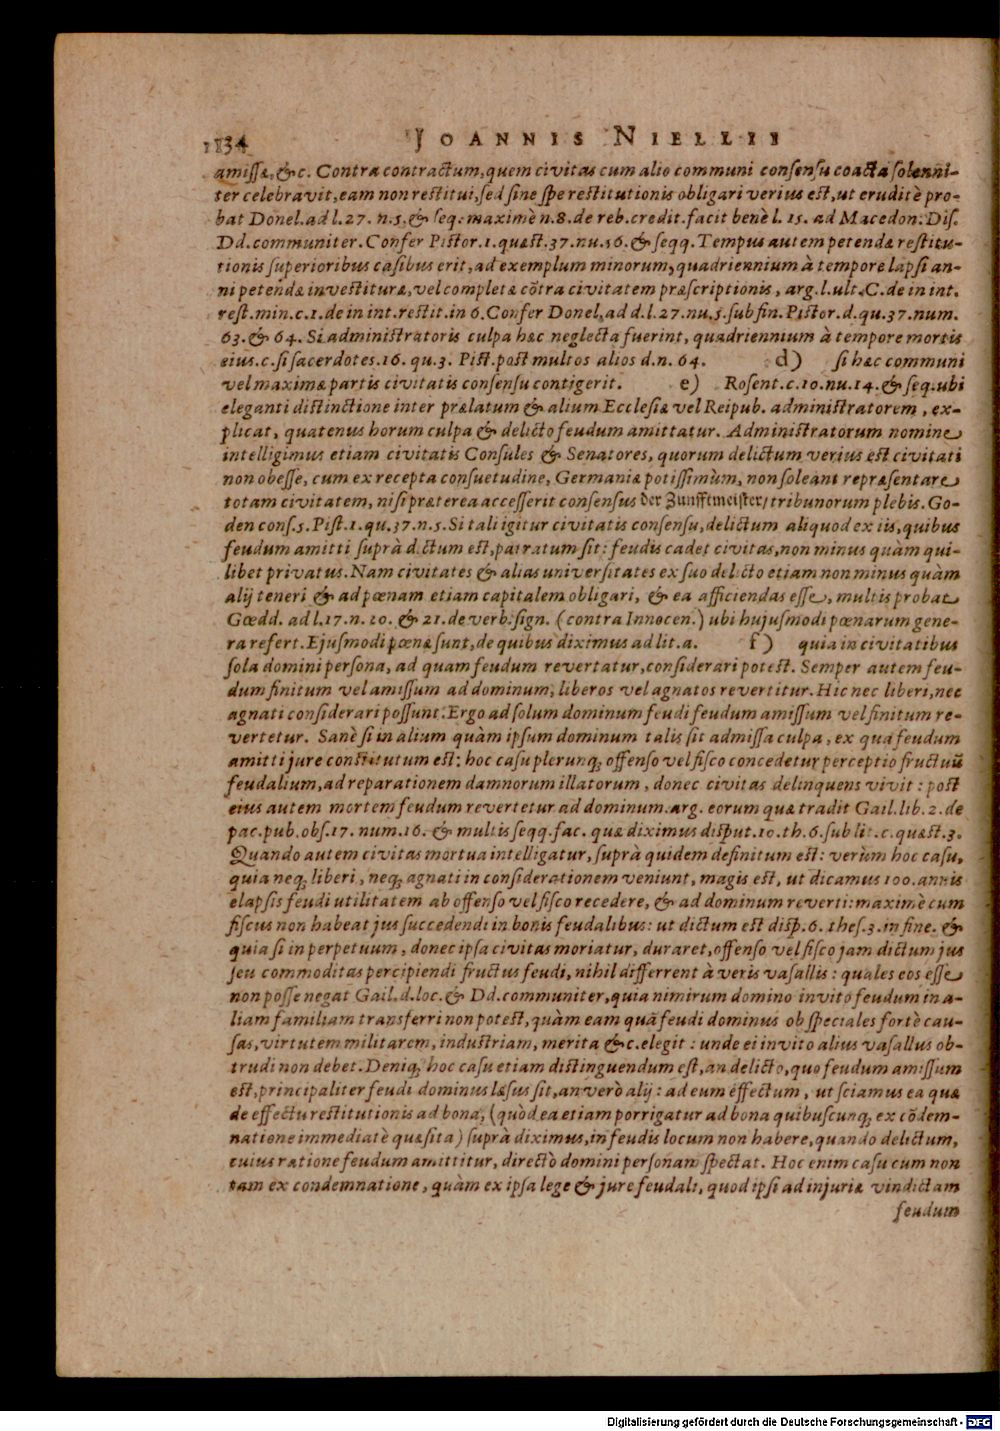 1134 JOANNIS NIELLII
amissæ, &c. Contra contractum, quem civitas cum alio communi consensu coacta solenni-
ter celebravit, eam non restitui, sed sine spe restitutionis obligari verius est, ut eruditè pro-
bat Donel. ad l. 27. n. 5. & seq. maximè n. 8. de reb. credit. facit benè l. 15. ad Macedon. Dis.
Dd. communiter. Confer Pistor. 1. quæst. 37. nu. 56. & seqq. Tempus autem petendæ restitu-
tionis superioribus casibus erit, ad exemplum minorum, quadriennium à tempore lapsi an-
ni petendæ investituræ, vel completæ cõtra civitatem præscriptionis, arg. l. ult. C. de in int.
rest. min. c. 1. de in int. restit. in 6. Confer Donel, ad d. l. 27. nu. 5. sub fin. Pistor. d. qu. 37. num.
63. & 64. Si administratoris culpa hæc neglecta fuerint, quadriennium à tempore mortis
eius. c. si sacerdotes. 16. qu. 3. Pist. post multos alios d. n. 64. d) si hæc communi
vel maximæ partis civitatis consensu contigerit. e) Rosent. c. 10. nu. 14. & seq. ubi
eleganti distinctione inter prælatum & alium Ecclesiæ vel Reipub. administratorem, ex-
plicat, quatenus horum culpa & delicto feudum amittatur. Administratorum nomine
intelligimus etiam civitatis Consules & Senatores, quorum delictum verius est civitati
non obesse, cum ex recepta consuetudine, Germaniæ potissimùm, non soleant repræsentare
totam civitatem, nisi præterea accesserit consensus der Zunfftmeister/ tribunorum plebis. Go-
den cons. 5. Pist. 1. qu. 37. n. 5. Si tali igitur civitatis consensu, delictum aliquod ex iis, quibus
feudum amitti suprà dictum est, patratum sit: feudis cadet civitas, non minus quàm qui-
libet privatus. Nam civitates & alias universitates ex suo delicto etiam non minus quàm
alij teneri & ad pœnam etiam capitalem obligari, & ea afficiendas esse, multis probat
Gœdd. ad l. 17. n. 20. & 21. de verb. sign. (contra Innocen.) ubi hujusmodi pœnarum gene-
ra refert. Ejusmodi pœnæ sunt, de quibus diximus ad lit. a. f) quia in civitatibus
sola domini persona, ad quam feudum revertatur, considerari potest. Semper autem feu-
dum finitum vel amissum ad dominum, liberos vel agnatos revertitur. Hic nec liberi, nec
agnati considerari possunt. Ergo ad solum dominum feudi feudum amissum vel finitum re-
vertetur. Sanè si in alium quàm ipsum dominum talis sit admissa culpa, ex qua feudum
amitti jure constitutum est: hoc casu plerunq; offenso vel fisco concedetur perceptio fructuũ
feudalium, ad reparationem damnorum illatorum, donec civitas delinquens vivit: post
eius autem mortem feudum revertetur ad dominum. arg. eorum quæ tradit Gail. lib. 2. de
pac. pub. obs. 17. num. 16. & multis seqq. fac. quæ diximus disput. 10. th. 6. sub lit. c. quæst. 3.
Quando autem civitas mortua intelligatur, suprà quidem definitum est: verùm hoc casu,
quia neq; liberi, neq; agnati in considerationem veniunt, magis est, ut dicamus 100. annis
elapsis feudi utilitatem ab offenso vel fisco recedere, & ad dominum reverti: maximè cum
fiscus non habeat jus succedendi in bonis feudalibus: ut dictum est disp. 6. thes. 3. in fine. &
quia si in perpetuum, donec ipsa civitas moriatur, duraret, offenso vel fisco jam dictum jus
seu commoditas percipiendi fructus feudi, nihil differrent à veris vasallis: quales eos esse
non posse negat Gail. d. loc. & Dd. communiter, quia nimirum domino invito feudum in a-
liam familiam transferri non potest, quàm eam quã feudi dominus ob speciales fortè cau-
sas, virtutem militarem, industriam, merita &c. elegit: unde ei invito alius vasallus ob-
trudi non debet. Deniq; hoc casu etiam distinguendum est, an delicto, quo feudum amissum
est, principaliter feudi dominus læsus sit, an verò alij: ad eum effectum, ut sciamus ea quæ
de effectu restitutionis ad bona, (quòd ea etiam porrigatur ad bona quibuscunq; ex cõdem-
natione immediatè quæsita) suprà diximus, in feudis locum non habere, quando delictum,
cuius ratione feudum amittitur, directò domini personam spectat. Hoc enim casu cum non
tam ex condemnatione, quàm ex ipsa lege & jure feudali, quod ipsi ad injuriæ vindictam
feudum
Digitalisierung gefördert durch die Deutsche Forschungsgemeinschaft - DFG